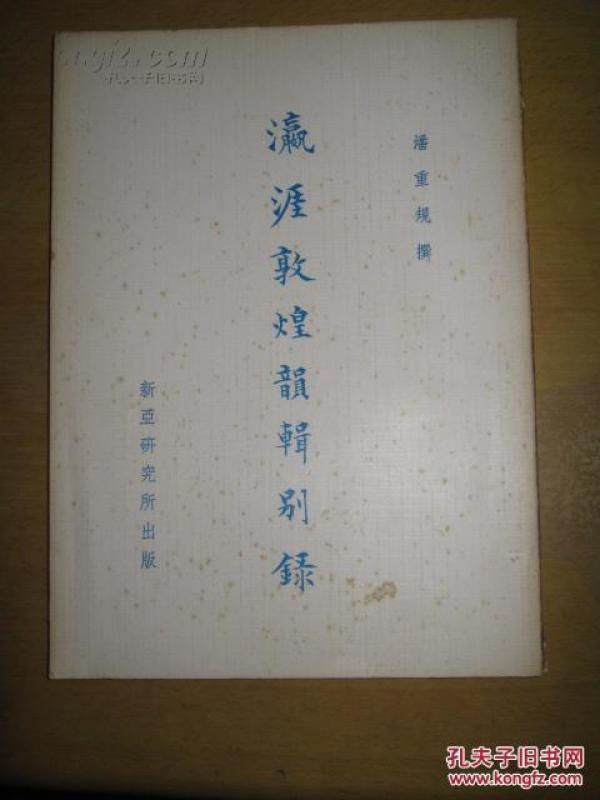 潘重規撰
瀛涯敦煌韻輯別錄
新亞研究所出版
孔夫子旧书网
孔夫子旧书网
www.kongfz.com